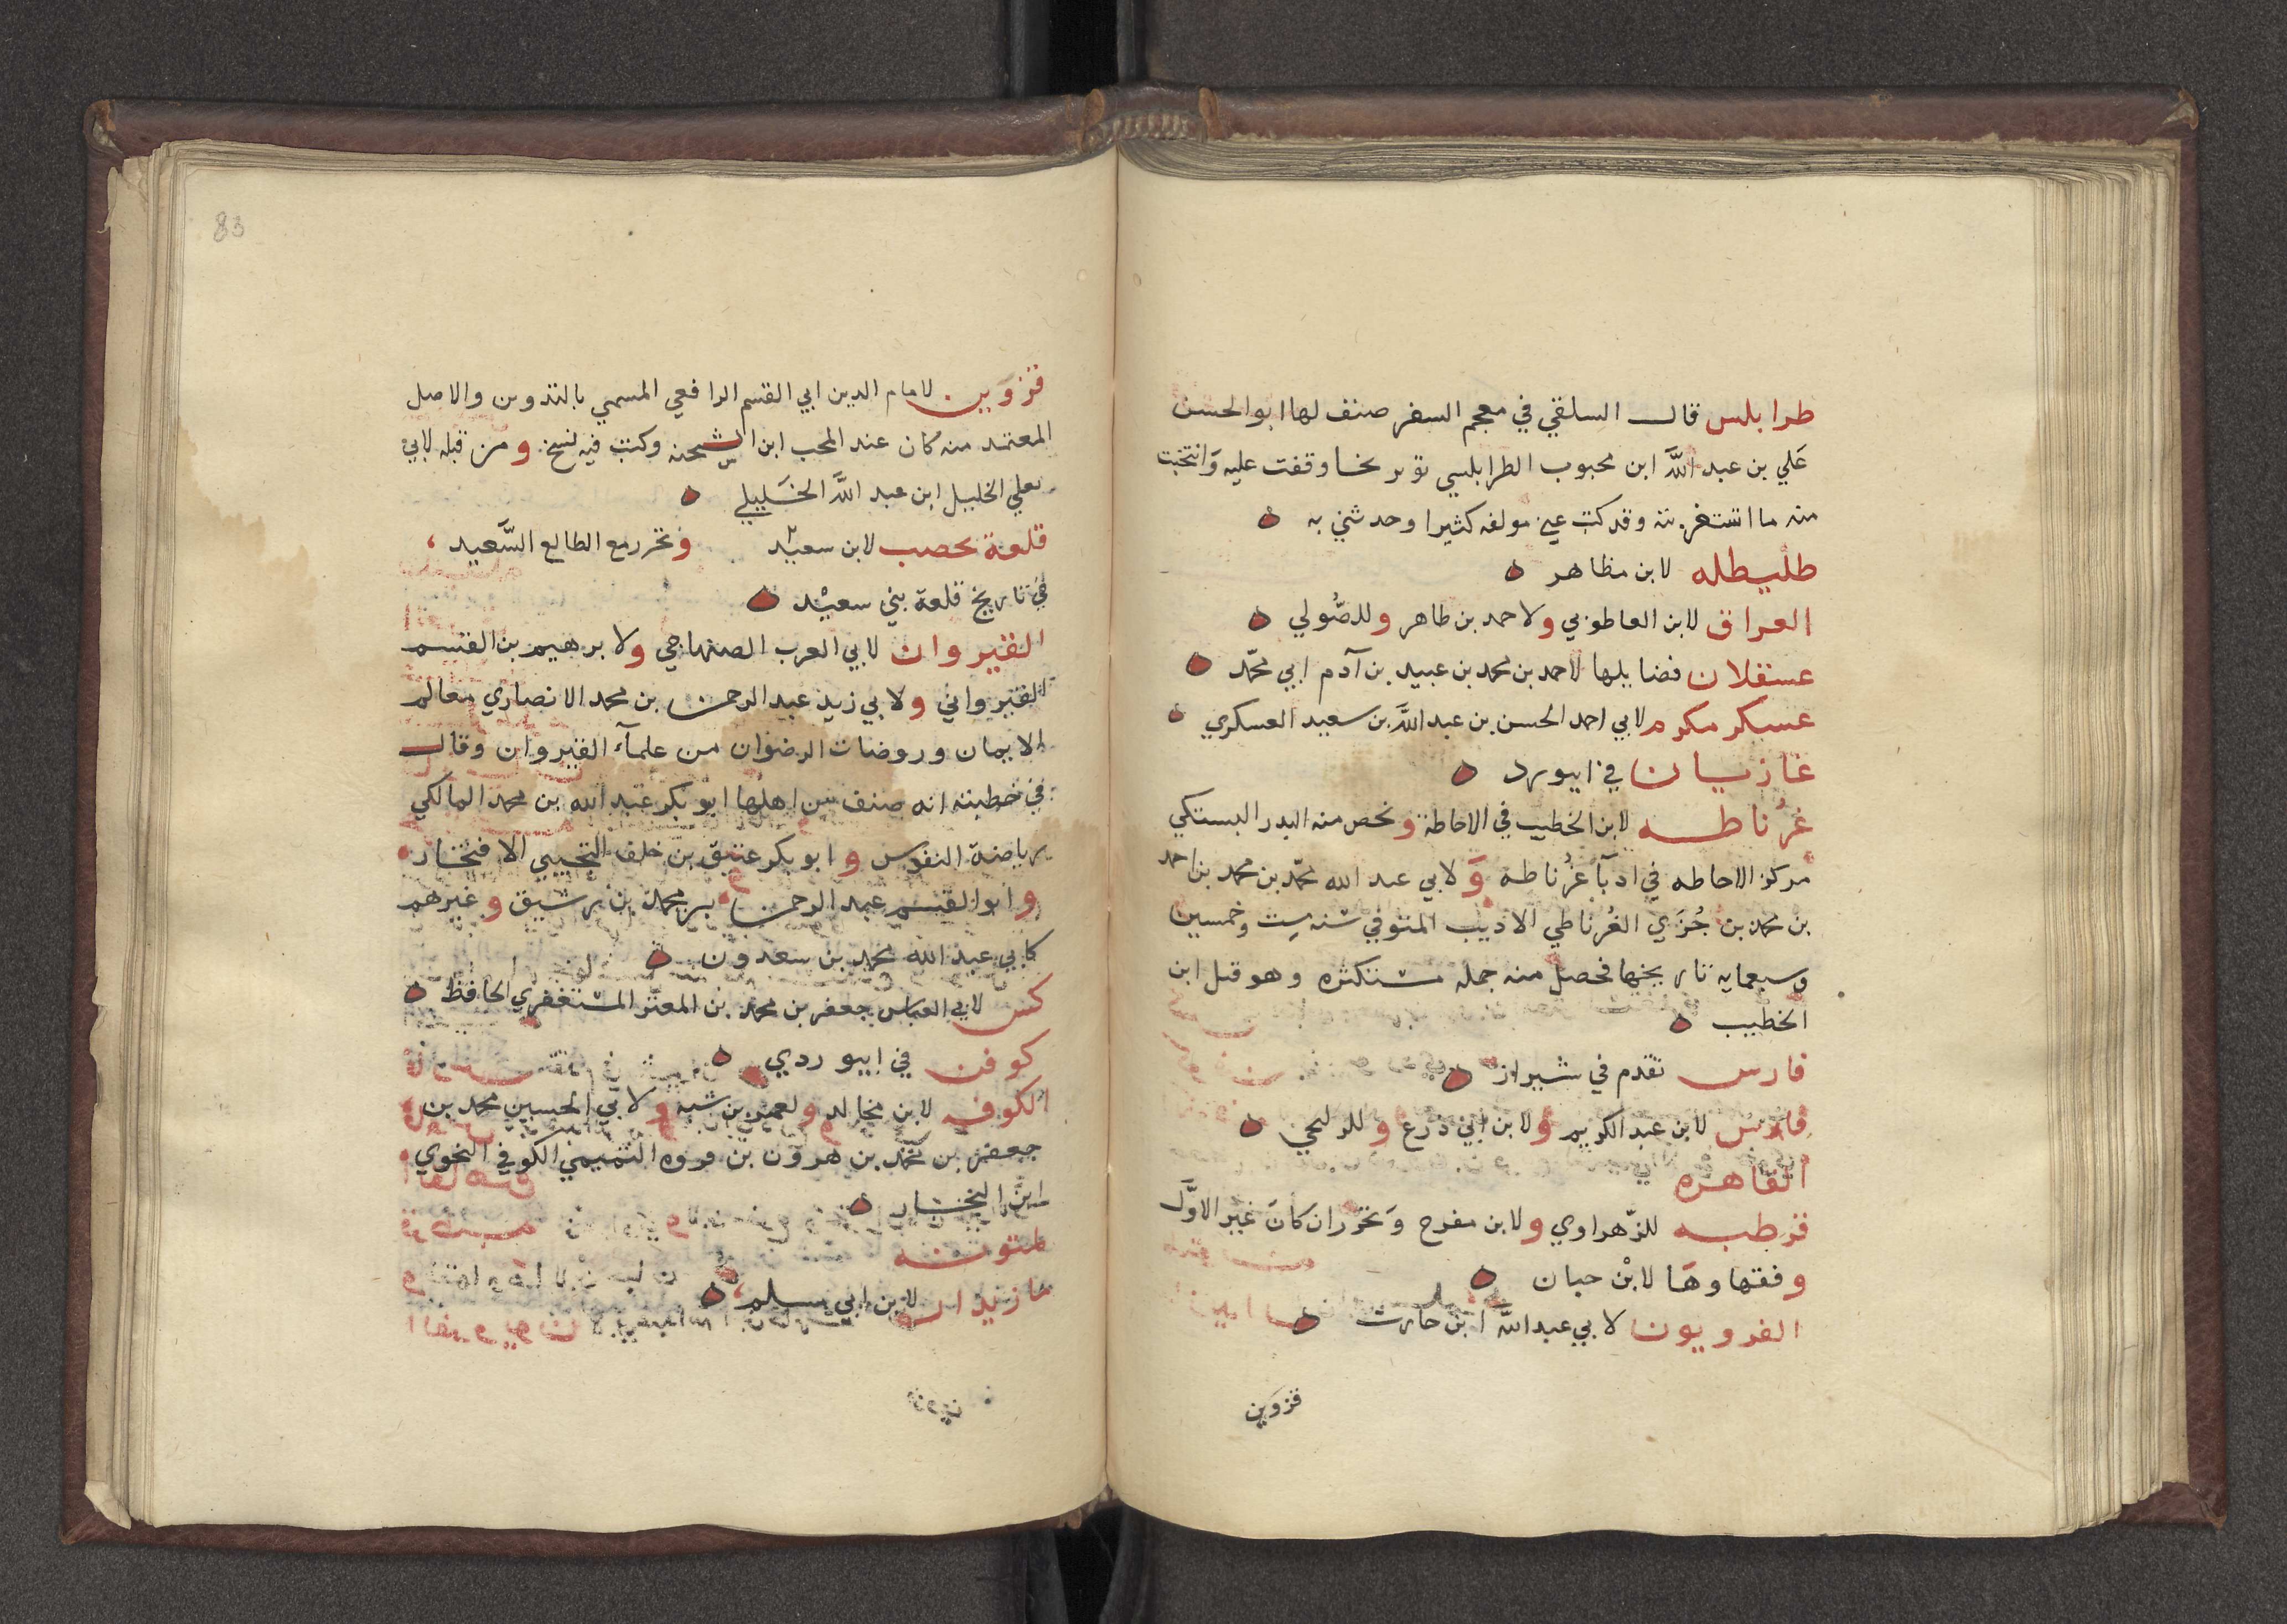 طرابلس قال السلفي في معجم السفر صنف لها ابو الحسن
عَلي بن عبد اللَّه ابن محبوب الطرابلسي تاريخا وقفت عليه وَانتخبت
منه ما استغربته وقد كتب عني مولفه كثيرا وحدثني به ه
طليطله لابن مظاهر ه
العراق لابن القاطوني ولاحمد بن طاهر وللصُّولي ه
عسقلان فضايلها لاحمد بن محمد بن عبيد بن آدم ابي محمّد ه
عسكر مكرم لابي احمد الحسن بن عبد اللَّه بن سعيد العسكري ه
غازيان في ابيورد ه
غرُناطه لابن الخطيب في الاحاطة ولخص منه البدر البستكي
مركز الاحاطه في ادبآ غرُناطة وَ لابي عبد الله محمّد بن محمد بن احمد
بن محمد بن جُزَي الغُرناطي الاديب المتوفي سنه ست وخمسين
وسبعمايه تاريخها فحصل منه جمله مستكثره وهو قبل ابن
الخطيب ه
فارس تقدم في شيراز ه
فارس لابن عبد الكريم ولابن ابي ذرع وللدلجي ه
القاهره
قرطبه للزّهراوي ولابن مفرح وَتحرر ان كانَ غير الاوَّل
وفقهاوهَا لابْن حبان ه
القرويون لابي عبد اللّه ابن حارث ه
قزوَين
83
قزوَين لامام الدين ابي القسم الرافعي المسمي بالتدوين والاصل
المعتمد منه كان عند المحب ابن الشحنه وكتب فيه نسخ ومن قبله لابي
يعلي الخليل ابن عبد اللَّه الخَليلي ه
قلعة يحصب لابن سعيد وتحرر مع الطالع السَّعيد
في تاريخ قلعة بني سعيْد ه
القيروان لابي العرب الصنهاجي ولابرهيم بن القسم
القيرواني ولابي زيد عبد الرحمن بن محمد الانصاري معالم
الايمان وروضات الرضوان من علمآء القيروان وقال
في خطبته انه صنف من اهلها ابو بكر عبد الله بن محمد المالكي
رياضة النفوس وابو بكر عتيق بن خلف التجيبي الافتخار
وابو القسم عبد الرحمن بن محمد بن رشيق وغيرهم
كابي عبد الله محمد بن سعدون ه
كس لابي العباس جعفر بن محمد بن المعتز المستغفري الحافظ ه
كوفن في ابيوردي ه
الكوفه لابن مجالد ولعمر بن شبه ولابي الحسين محمد بن
جعفر بن محمد بن هرون بن فروه التميمي الكوفي النحوي
ابن النجار ه
لمتونه
مازيدان لابن ابي سلم ه